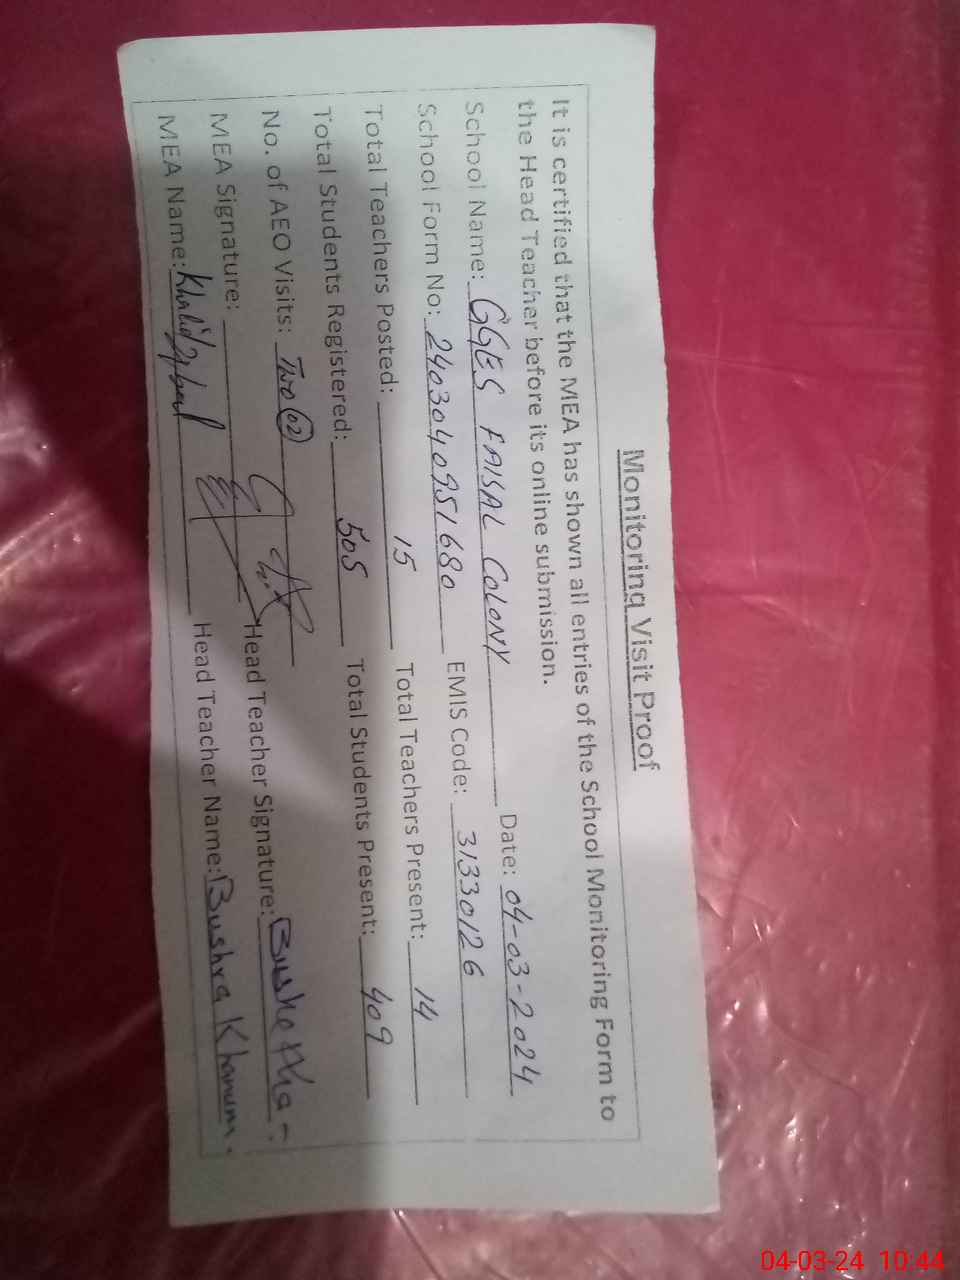 Monitoring Visit Proof
It is certified that the MEA has shown all entries of the School Monitoring Form to
the Head Teacher before its online submission.
School Name: GGES FAISAL COLONY Date: 04-03-2024
School Form No: 2403040951680 EMIS Code: 31330126
Total Teachers Posted: 15 Total Teachers Present: 14
Total Students Registered: 505 Total Students Present: 409
No. of AEO Visits: Two (02)
MEA Signature: Head Teacher Signature:
MEA Name: Khalid Iqbal Head Teacher Name: Bushra Khanum.
04-03-24 10:44